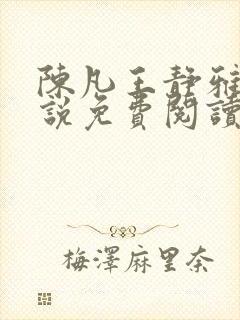 陳凡王靜雅
說免費閱讀
梅澤麻里奈